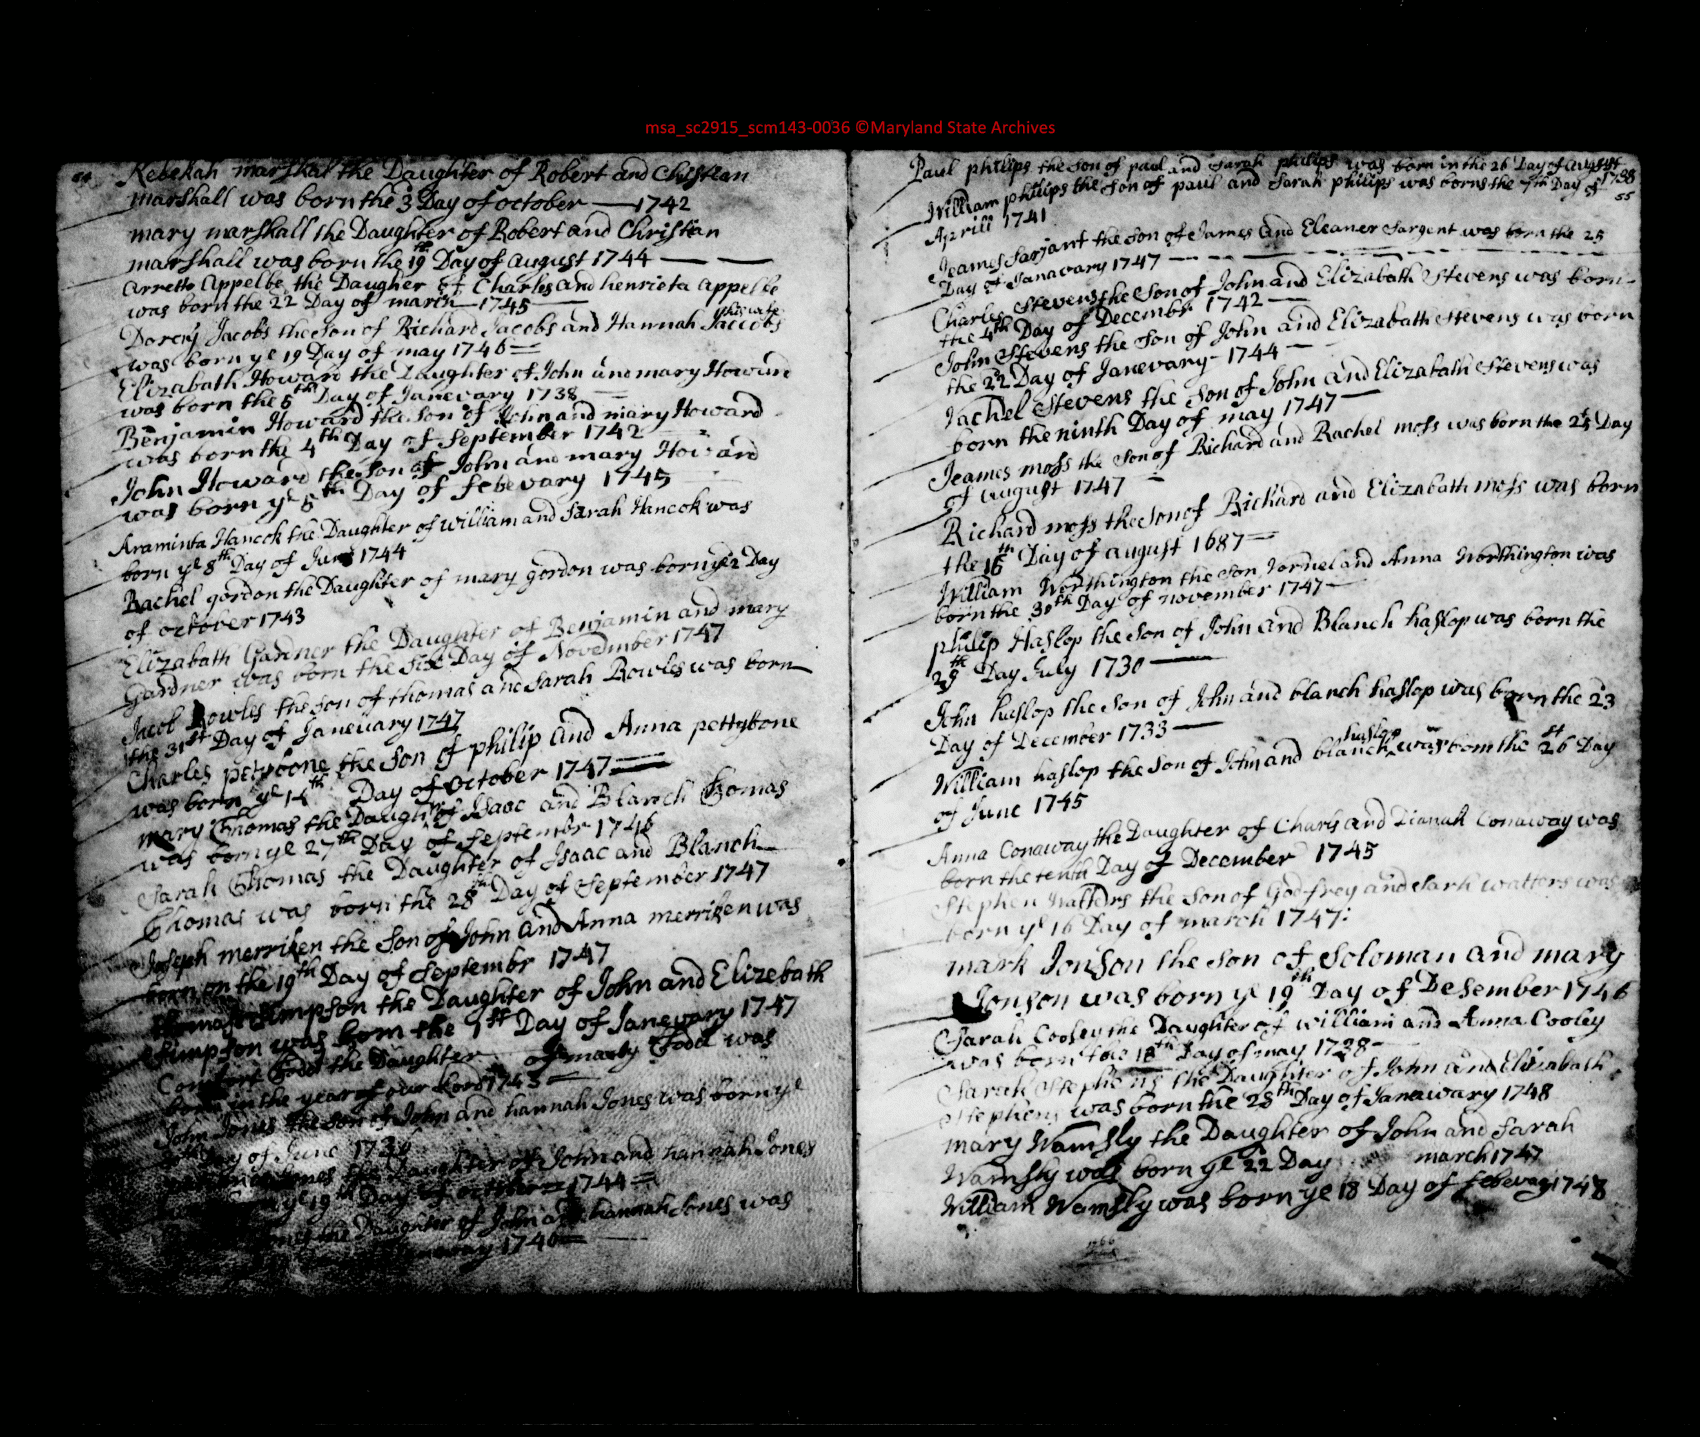 msa_sc2915_scm143-0036 ©Maryland State Archives
54
Rebekah marshal the Daughter of Robert and Christian
marshall was born the 3 Day of october — 1742
mary marshall the Daughter of Robert and Christian
marshall was born the 19th Day of august 1744 — —
Arretto Appelbe the Daugher of Charles and henrieta Appelbe
was born the 22 Day of march — 1745 —
his wife
Darcey Jacobs the Son of Richard Jacobs and Hannah Jaccobs
was born ye 19 Day of may 1746 =
Elizabath Howard the Daughter of John and mary Howard
was born the 5th Day of Janevary 1738 —
Benjamin Howard the Son of John and mary Howard
was born the 4th Day of September 1742
John Howard the Son of John and mary Howard
was born ye 8th Day of febevary 1745
Araminta Hancok the Daughter of william and Sarah Hancok was
born ye 8th Day of June 1744
Rachel gordon the Daughter of mary gordon was born ye 2 Day
of october 1743
Elizabath Gardner the Daughter of Benjamin and mary
Gardner was born the Day of November 1747
Jacob Rowles the Son of thomas and Sarah Rowles was born
the 31st Day of Janeuary 1747
Charles petybone the Son of philip and Anna pettybone
was born ye 14th Day of october 1747
mary Thomas the Daughtr of Isaac and Blanch Thomas
was born ye 27th Day of September 1746
Sarah Thomas the Daughter of Isaac and Blanch
Thomas was born the 28th Day of September 1747
Joseph merriken the Son of John and Anna merriken was
born on the 19th Day of Septembr 1747
Stimpson the Daughter of John and Elizebath
Stimpson was born the 1st Day of Janevary 1747
Comfort Todd the Daughter of marby Todd was
born in the year of our Lord 1743 —
John Jones the Son of John and hannah Jones was born ye
Day of June 1739
Jones the Daughter of John and hannah Jones
ye 19th Day of october = 1744 =
the Daughter of John and hannah Jones was
1746 =
Paul philips the Son of paul and Sarah philips was born in the 26 Day of August
1738
William philips the Son of paul and Sarah philips was borns the 7th Day of
55
Aprill 1741
Jeames Sarjant the Son of James and Eleaner Sargent was born the 25
Day of Janavary 1747
Charles Stevens the Son of John and Elizabath Stevens was born
the 4th Day of Decembr 1742 —
John Stevens the Son of John and Elizabath Stevens was born
the 22 Day of Janevary 1744 —
Vachel Stevens the Son of John and Elizabath Stevens was
born the ninth Day of may 1747 —
Jeames moss the Son of Richard and Rachel moss was born the 25 Day
of August 1747 —
Richard moss the Son of Richard and Elizabath moss was born
the 16th Day of august 1687 —
William Worthington the Son Vornel and Anna Worthington was
born the 30th Day of november 1747 —
philip Haslop the Son of John and Blanch haslop was born the
29th Day July 1730 —
John haslop the Son of John and blanch haslop was born the 23
Day of December 1733 —
haslop
William haslop the Son of John and blanch was born the 26 Day
of June 1745
Anna Conaway the Daughter of Charls and Dianah Conaway was
born the tenth Day of December 1745
Stephen watters the Son of Godfrey and Sarh watters was
born ye 16 Day of march 1747
mark Jonson the Son of Soloman and mary
Jonson was born ye 19th Day of Desember 1746
Sarah Cooley the Daughter of william and Anna Cooley
was born the 18th Day of may 1738 —
Sarah Stephens the Daughter of John and Elizabath
Stephens was born the 28th Day of Janawary 1748
mary Wamsly the Daughter of John and Sarah
Wamsly was born ye 22 Day march 1747
William Wamsly was born ye 18 Day of febevary 1748